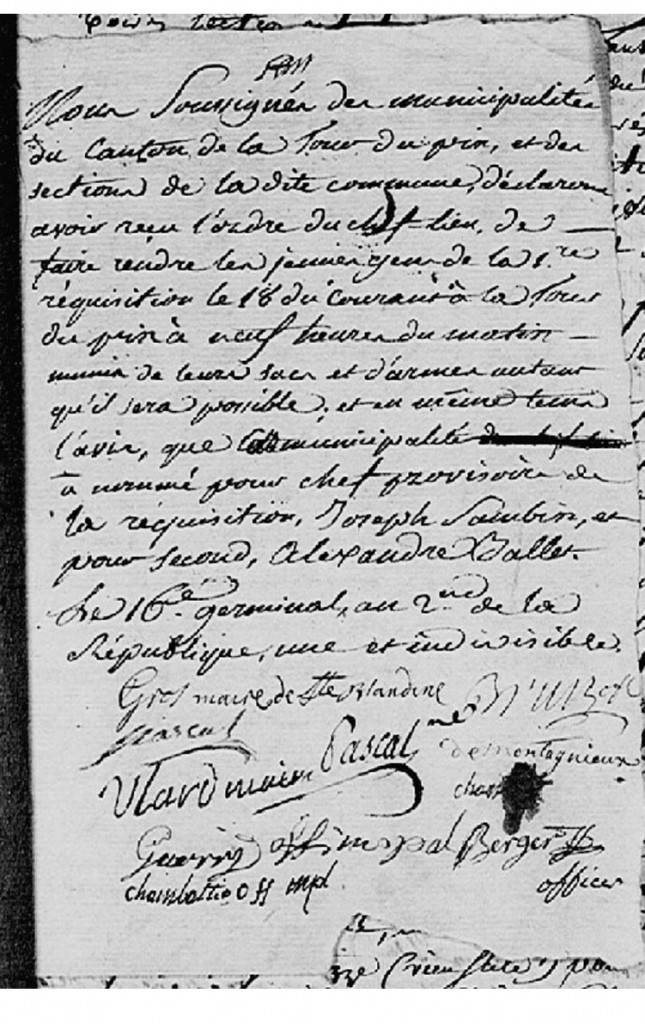 Nous Soussignés des municipalités
du Canton de la Tour du pin, et des
sections de la dite commune, déclarons
avoir reçu l'ordre du chef-lieu, de
faire rendre les jeunes gens de la 1.re
réquisition le 18 du Courant à la Tour
du pin à neuf heures du matin
munis de leurs sacs et d'armes autant
qu'il sera possible, et en même tems
l'avis, que la municipalité
à nommé pour chef provisoire de
la réquisition, Joseph Sambin, et
pour second, Alexandre Ballet.
Le 16e. germinal, an 2.nd de la
République, une et indivisible.
Gros maire de Ste Blandine
pascal
Pascal
de montagnieux
Vlard maire
Guerin off municipal Berger
chambottie off mpl.
officier